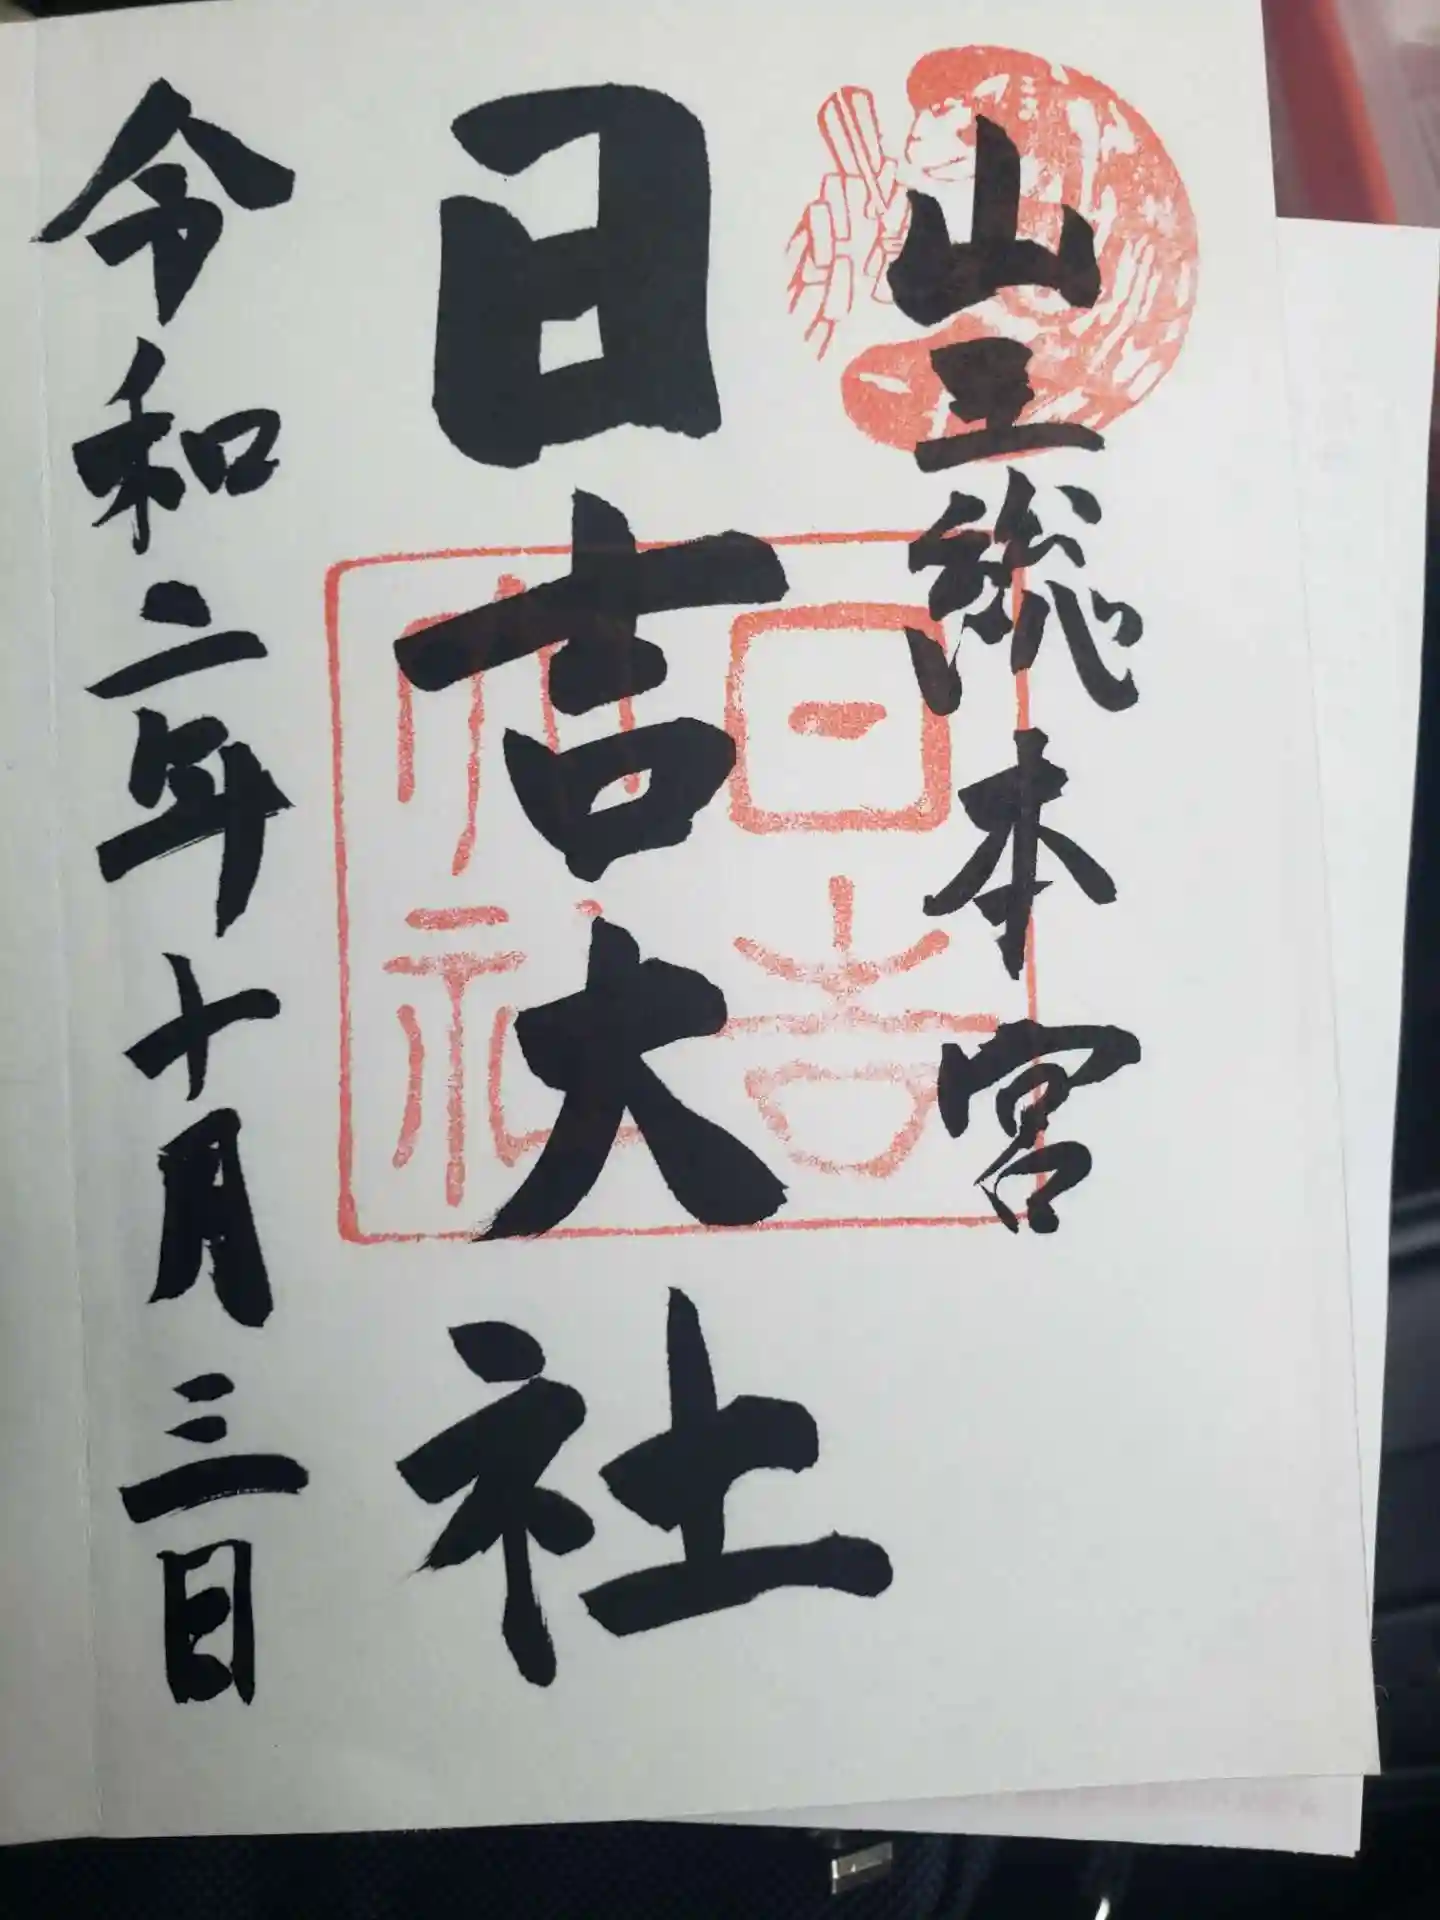 山王総本宮
日吉大社
日吉
大社
令和二年十月三日